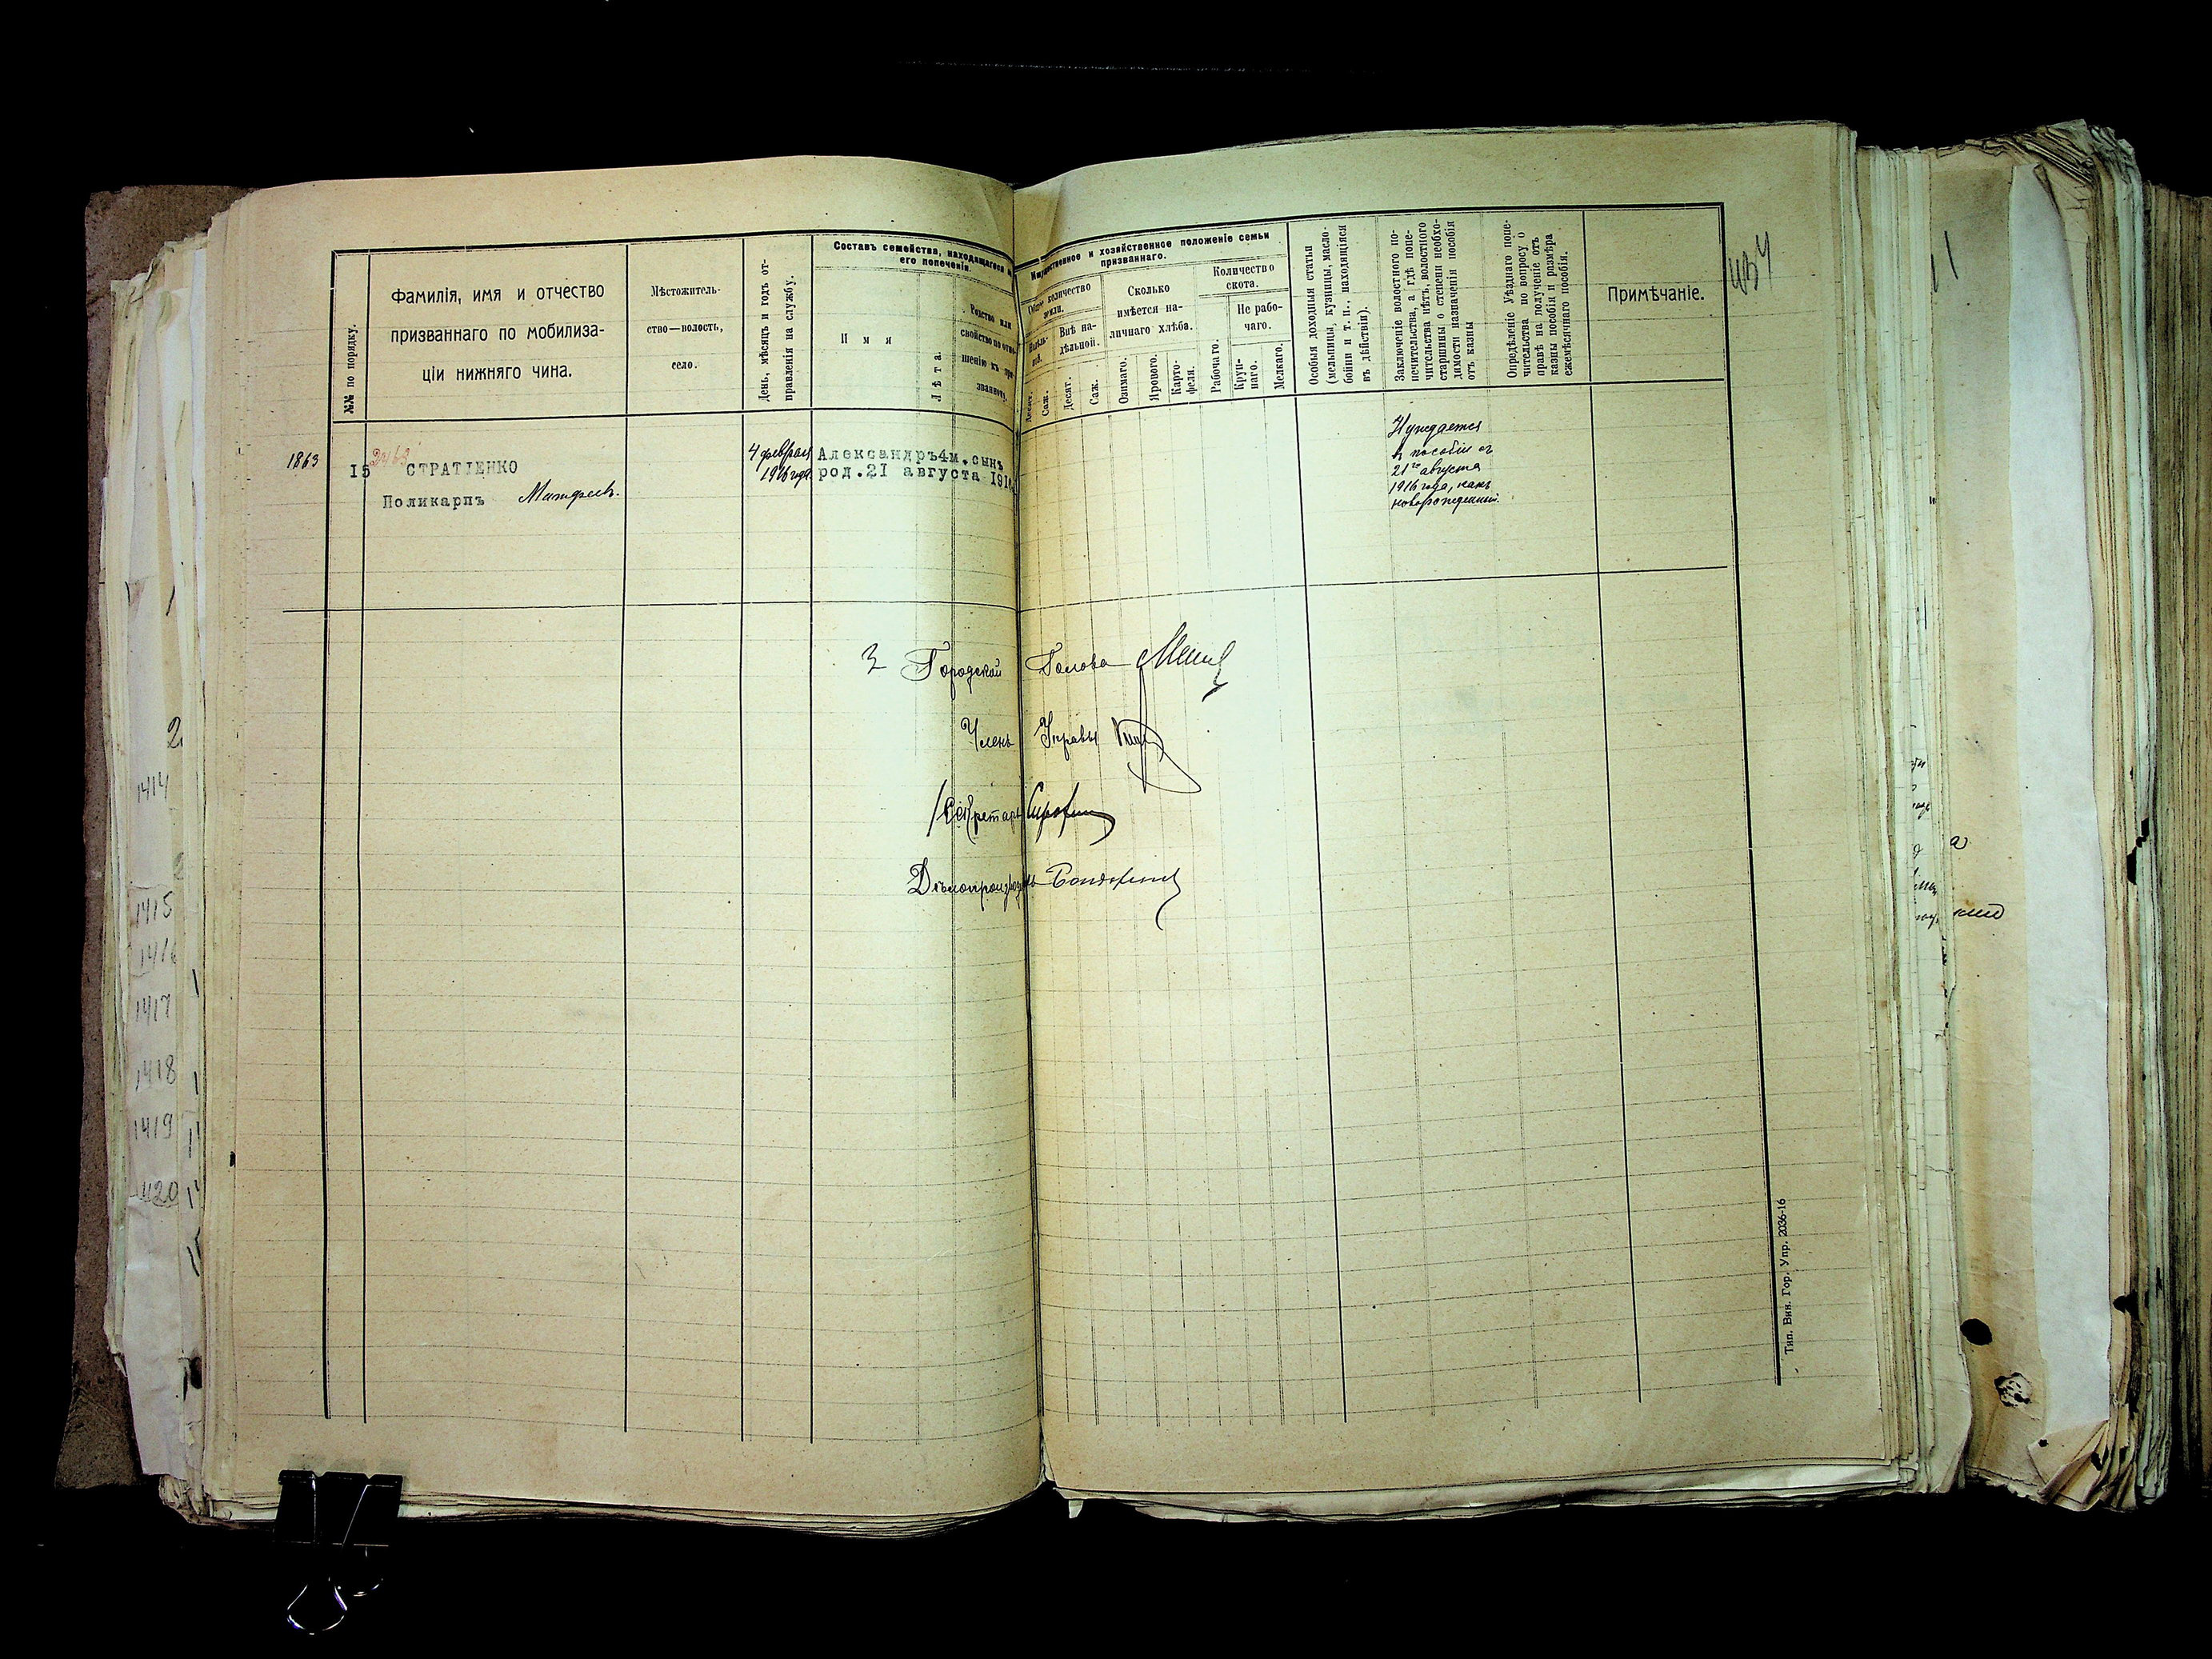 №№ по порядку.
Фамилія, имя и отчество
призваннаго по мобилиза-
ціи нижняго чина.
Мѣстожитель-
ство—волость,
село.
День, мѣсяцъ и годъ от-
правленія на службу.
Составъ семейства, находящагося
его попеченіи.
Имя
Лѣта.
Родство или
свойство по отно-
шенію къ при-
званному.
Имущественное и хозяйственное положеніе семьи
призваннаго.
Общее количество
земли.
Надѣль-
ной.
Внѣ на-
дѣльной.
Десят.
Саж.
Десят.
Саж.
Сколько
имѣется на-
личнаго хлѣба.
Озимаго.
Ярового.
Карто-
феля.
Количество
скота.
Рабочаго.
Не рабо-
чаго.
Круп-
наго.
Мелкаго.
Особыя доходныя статьи
(мельницы, кузницы, масло-
бойни и т. п., находящіяся
въ дѣйствіи).
Заключеніе волостного по-
печительства, а гдѣ попе-
чительства нѣтъ, волостного
старшины о степени необхо-
димости назначенія пособія
отъ казны
Опредѣленіе Уѣзднаго попе-
чительства по вопросу о
правѣ на полученіе отъ
казны пособія и размѣра
ежемѣсячнаго пособія.
Примѣчаніе.
1863
15
2463
СТРАТІЕНКО
Поликарпъ Матфеев.
4 февраля
1916 года
Александръ 4м. сынъ
род. 21 августа 191
Нуждается
в пособіи от
21го августа
1916 года, какъ
новорожденный.
Городской Голова
Членъ Управы
Секретарь
Дѣлопроизвод
Тип. Вин. Гор. Упр. 2036-16
1414
1415
1416
1417
1418
1419
1420